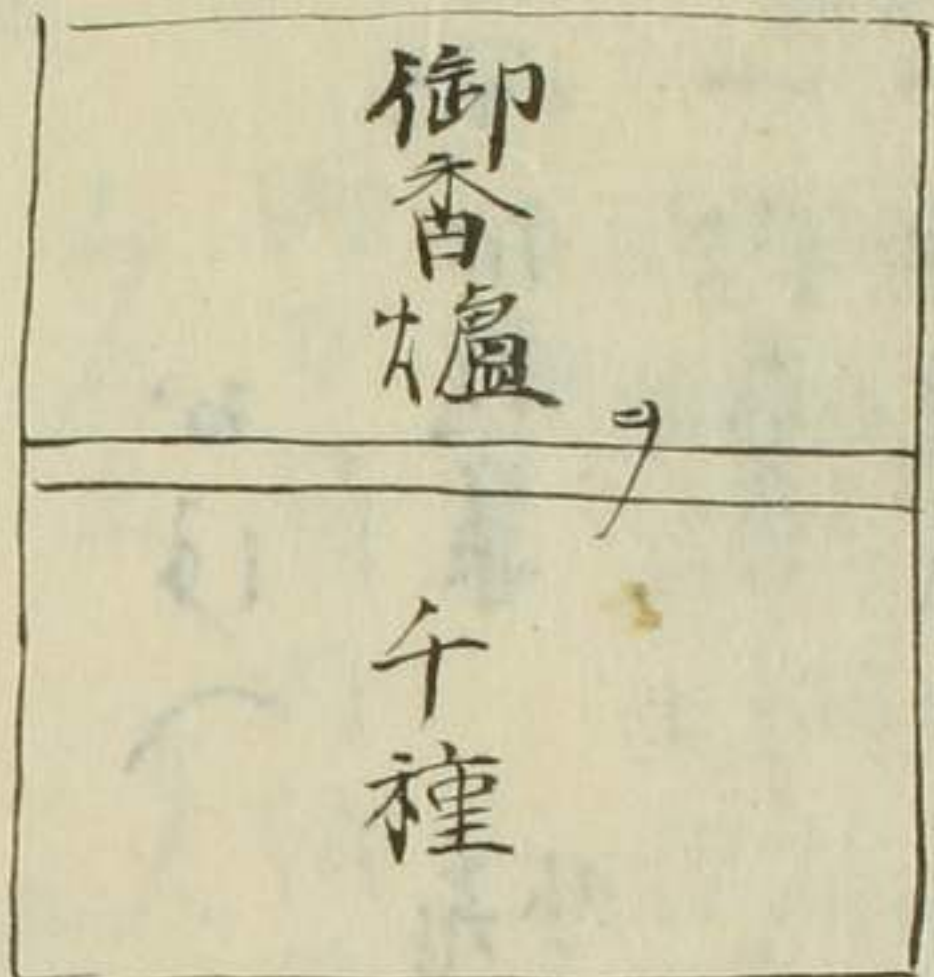 御香爐
千種